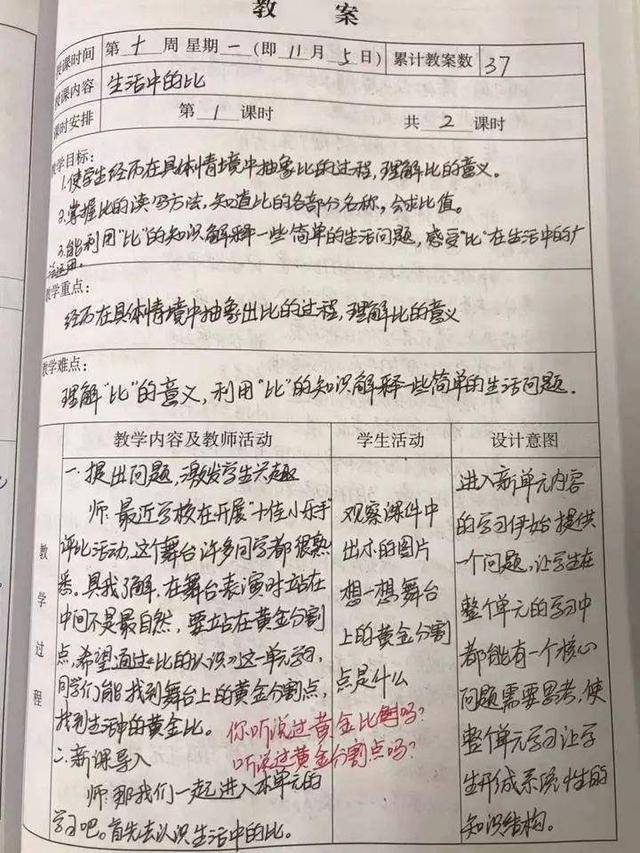 教 案
授课时间 第 十 周 星期 一 (即 11 月 5 日) 累计教案数 37
授课内容 生活中的比
课时安排 第 1 课时 共 2 课时
教学目标:
1.使学生经历在具体情境中抽象比的过程,理解比的意义。
2.掌握比的读写方法,知道比的各部分名称,会求比值。
3.能利用"比"的知识解释一些简单的生活问题,感受"比"在生活中的广
泛运用。
教学重点:
经历在具体情境中抽象出比的过程,理解比的意义
教学难点:
理解"比"的意义,利用"比"的知识解释一些简单的生活问题.
教学过程
教学内容及教师活动
一.提出问题,激发学生兴趣
师:最近学校在开展"十佳小歌手"
评比活动,这个舞台许多同学都很熟
悉。具我了解,在舞台表演时站在
中间不是最自然,要站在黄金分割
点,希望通过《比的认识》这一单元学习,
同学们能找到舞台上的黄金分割点,
找到生活中的黄金比。
你听说过黄金比例吗?
听说过黄金分割点吗?
二.新课导入
师:那我们一起进入本单元的
学习吧。首先去认识生活中的比。
学生活动
观察课件中
出示的图片
想一想舞台
上的黄金分割
点是什么
设计意图
进入新单元内容
的学习伊始提供
一个问题,让学生在
整个单元的学习中
都能有一个核心
问题需要思考,使
整个单元学习让学
生形成系统性的
知识结构。